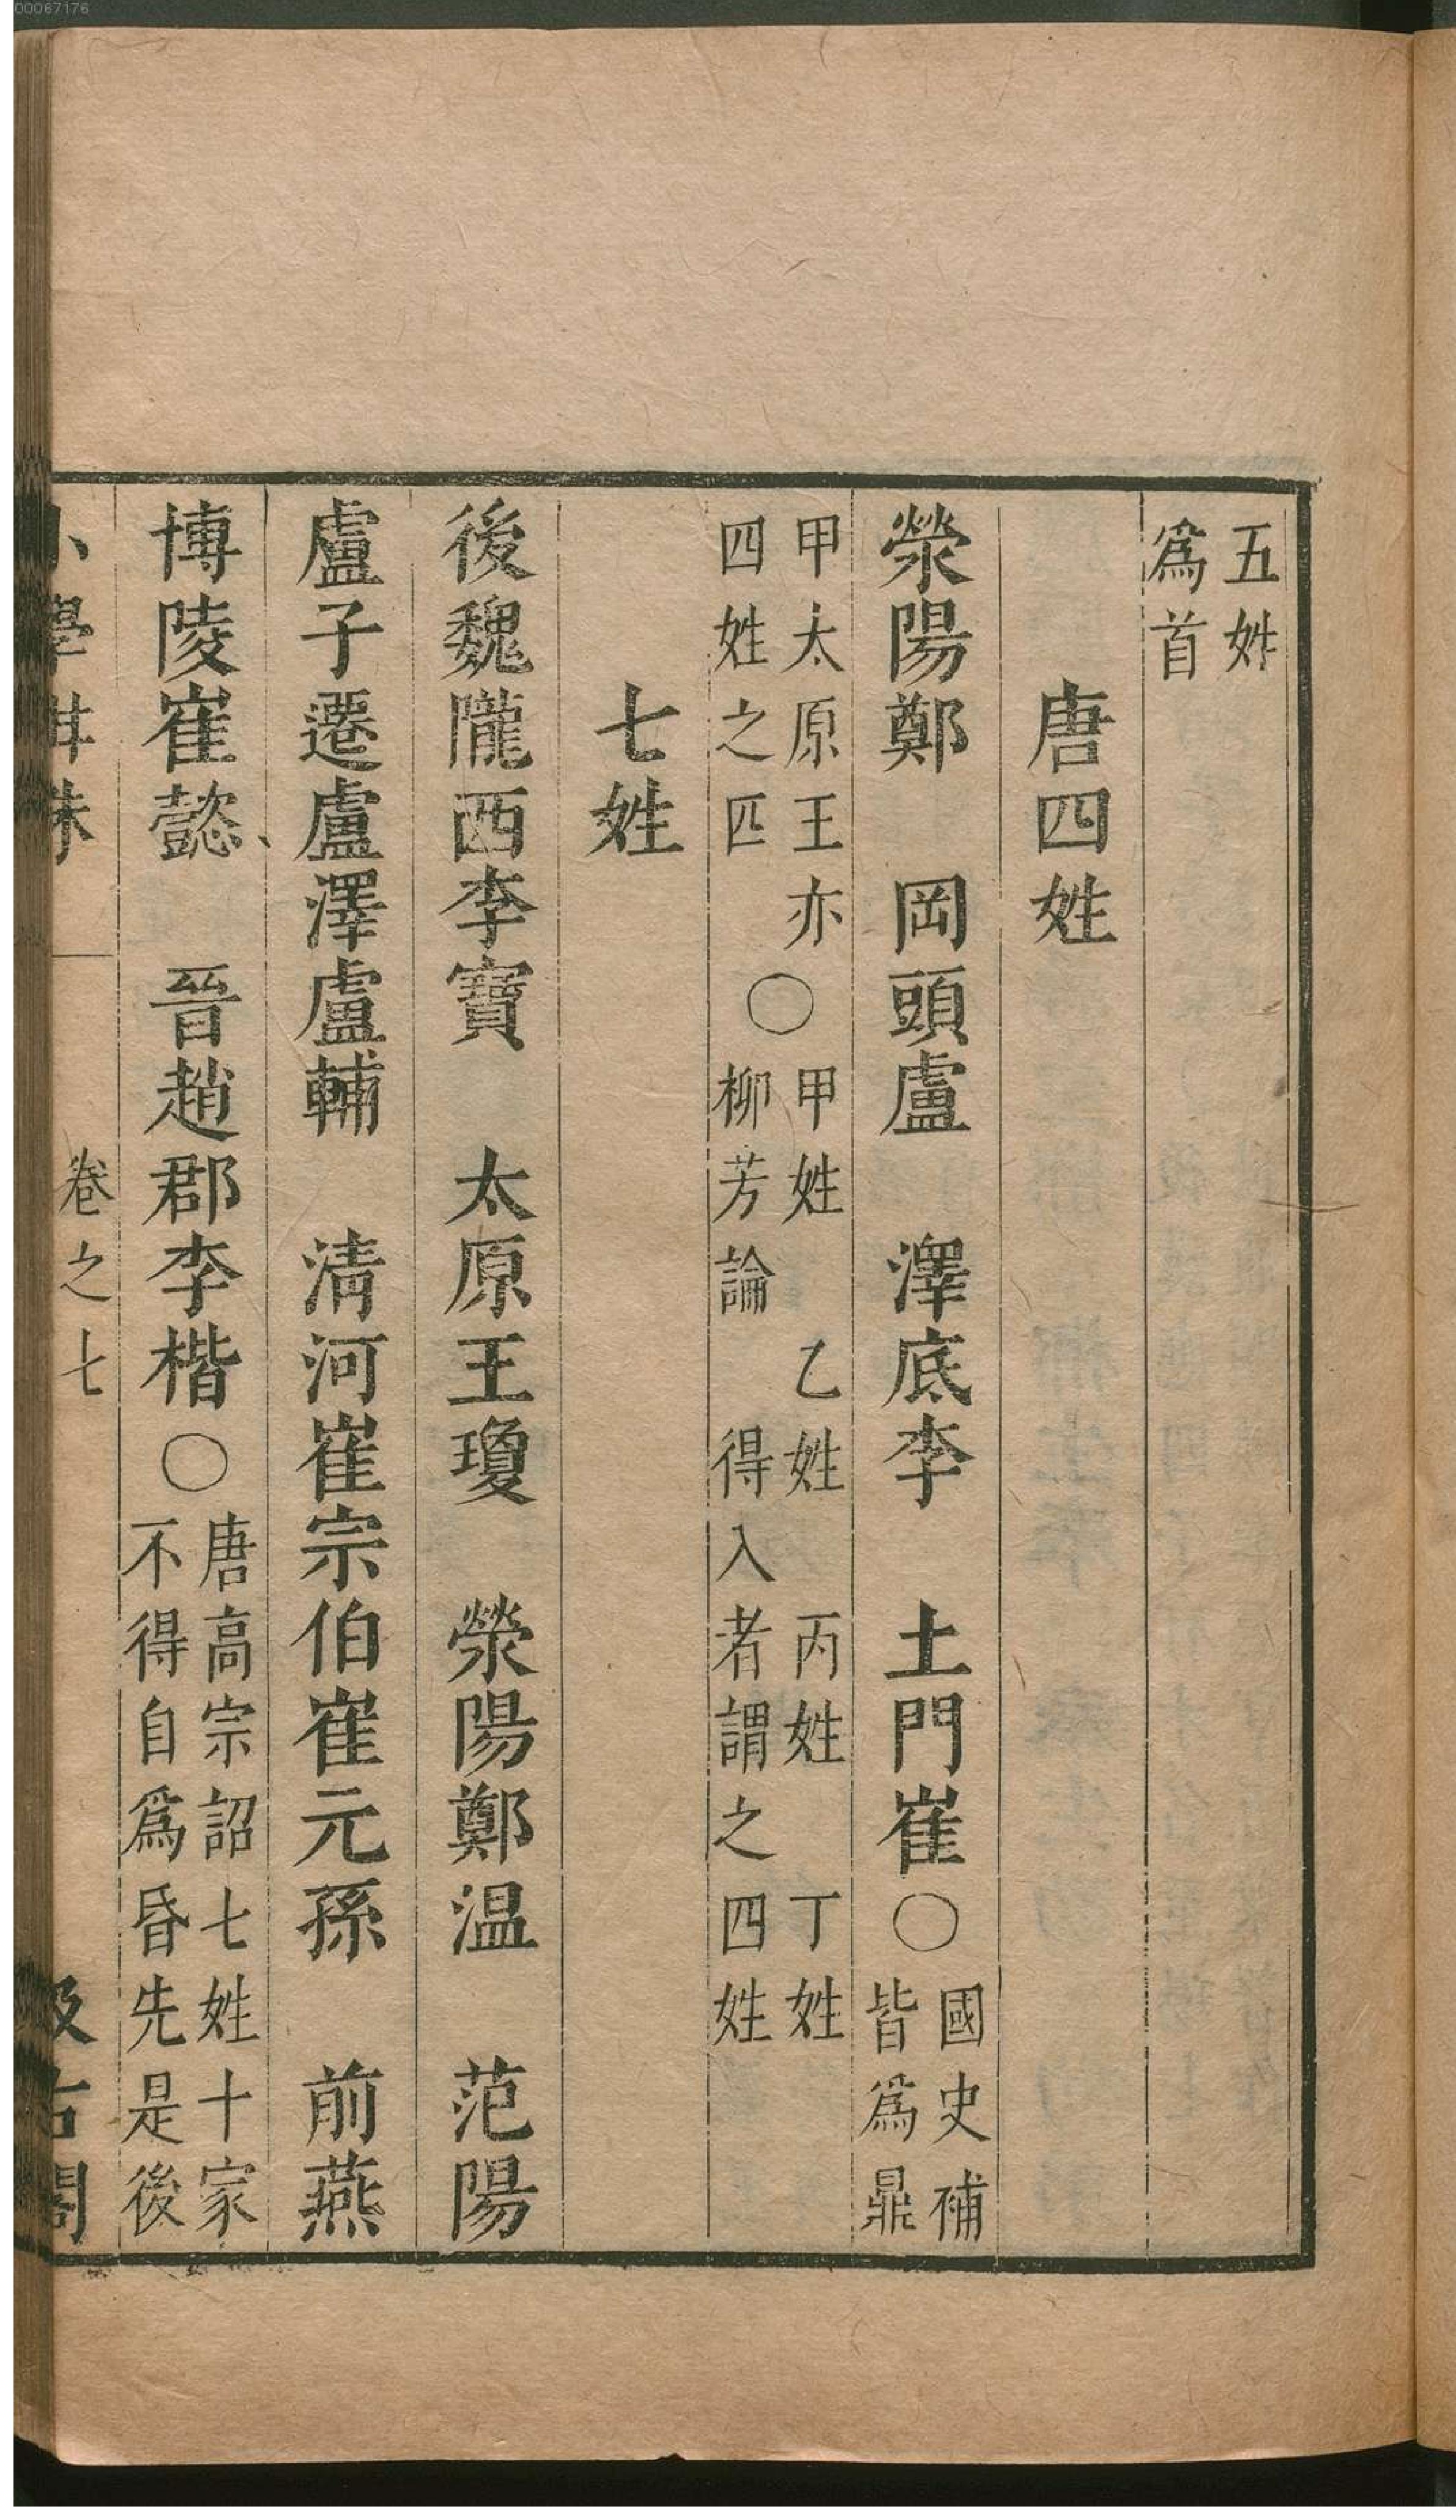 00067176
五姓
爲首
唐四姓
滎陽鄭 岡頭盧 澤底李 土門崔〇國史補
皆爲鼎
甲太原王亦
四姓之匹
〇
甲姓 乙姓 丙姓 丁姓
柳芳論 得入者謂之四姓
七姓
後魏隴西李寶 太原王瓊 滎陽鄭温 范陽
盧子遷盧澤盧輔 清河崔宗伯崔元孫 前燕
博陵崔懿 晉趙郡李楷〇唐高宗詔七姓十家
不得自爲昏先是後
小學紺珠 卷之七 汲古閣